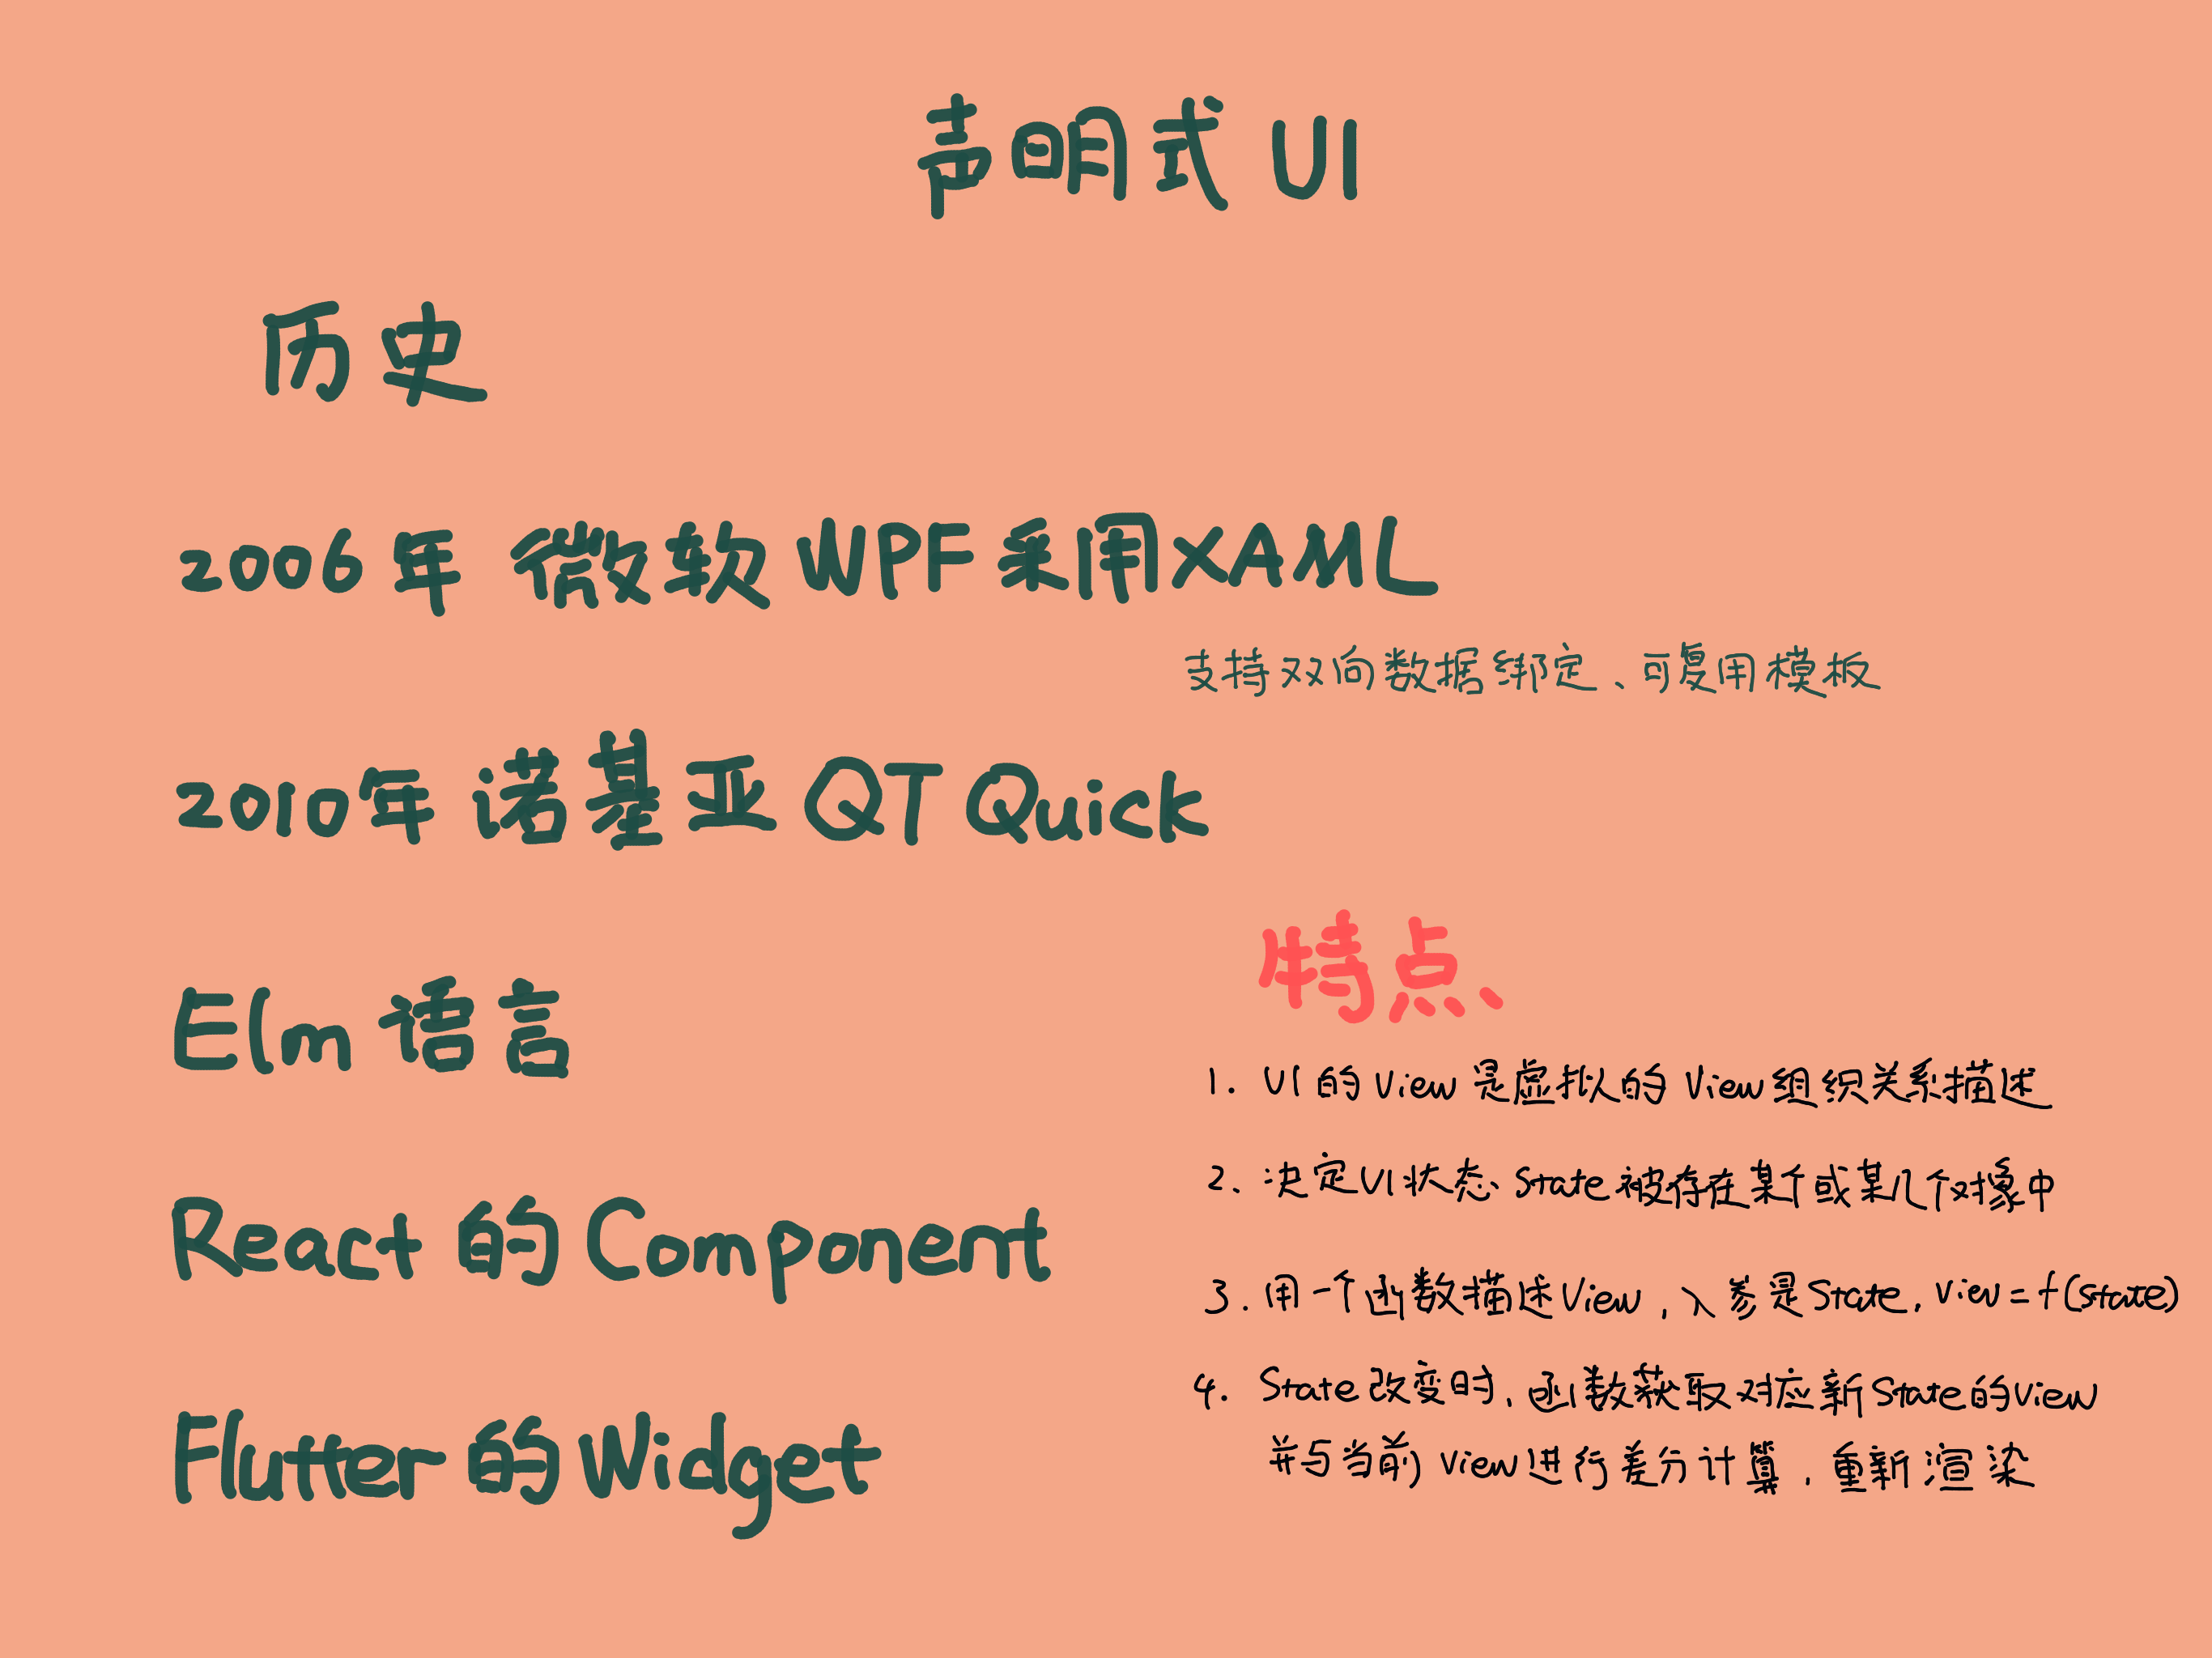 声明式 UI
历史
2006年 微软 WPF 采用XAML
支持双向数据绑定、可复用模板
2010年 诺基亚 QT Quick
Elm 语言
React 的 Component
Flutter 的 Widget
特点、
1. UI 的 View 是虚拟的 View 组织关系描述
2. 决定UI状态、State 被存在某个或某几个对象中
3. 用一个函数描述View，入参是State. View = f(state)
4. State 改变时、函数获取对应新State的View
并与当前 View 进行差分计算，重新渲染